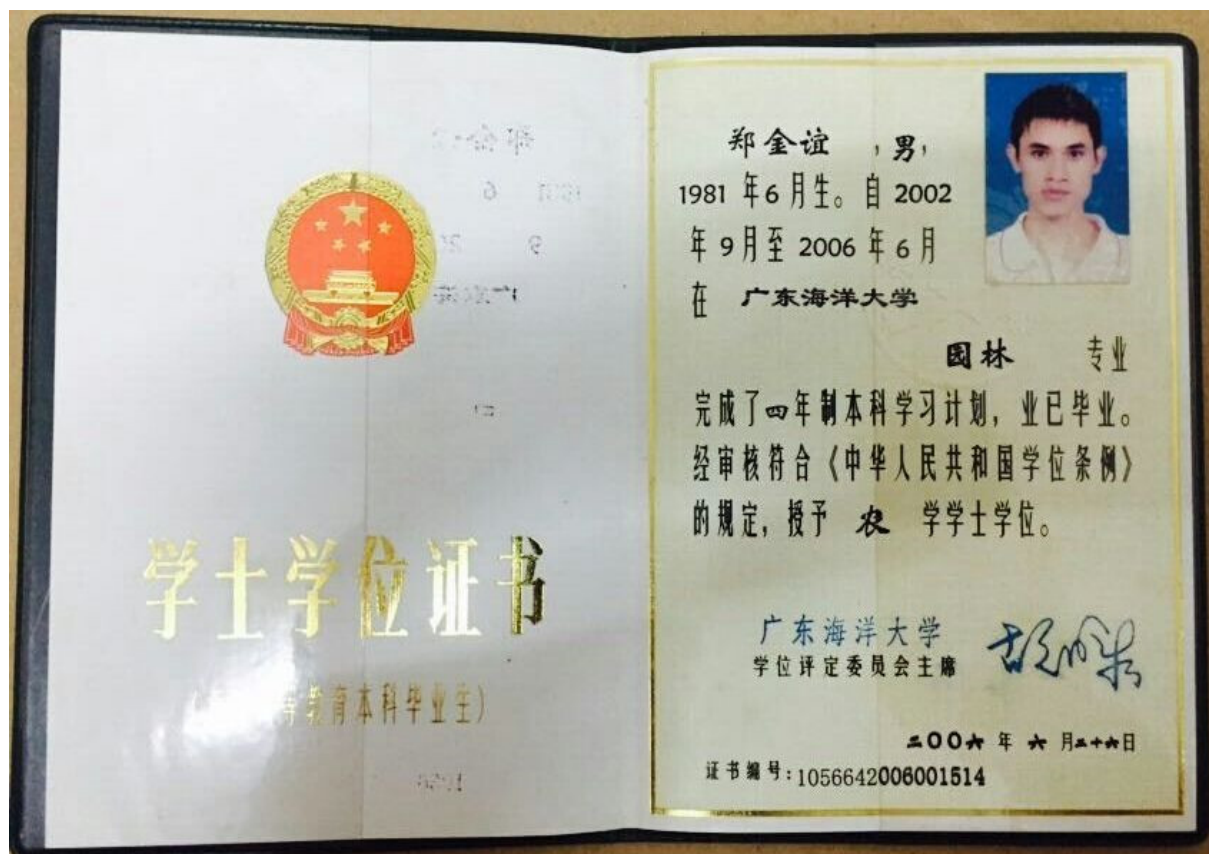 学士学位证书
等教育本科毕业生)
郑金谊 ,男,
1981 年6 月生。自 2002
年 9 月至 2006 年 6 月
在 广东海洋大学
园林 专业
完成了四年制本科学习计划, 业已毕业。
经审核符合《中华人民共和国学位条例》
的规定, 授予 农 学学士学位。
广东海洋大学
学位评定委员会主席
二〇〇六 年 六 月二十六日
证书编号:1056642006001514